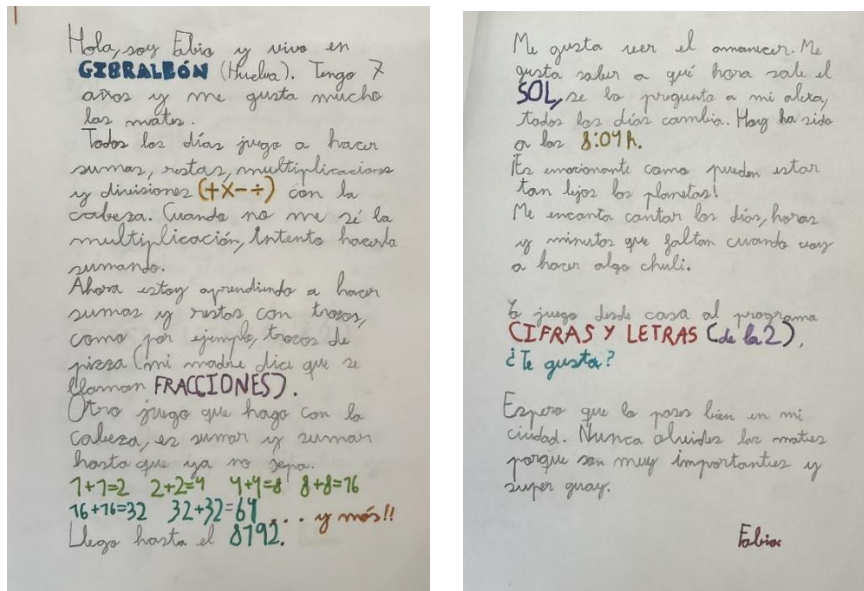 Hola, soy Fabio y vivo en
GIBRALEÓN (Huelva). Tengo 7
años y me gusta mucho
las mates.
Todos los días juego a hacer
sumas, restas, multiplicaciones
y divisiones (+X-÷) con la
cabeza. Cuando no me sé la
multiplicación, intento hacerla
sumando.
Ahora estoy aprendiendo a hacer
sumas y restas con trozos,
como por ejemplo, trozos de
pizza (mi madre dice que se
llaman FRACCIONES).
Otro juego que hago con la
cabeza, es sumar y sumar
hasta que ya no sepa.
1+1=2 2+2=4 4+4=8 8+8=16
16+16=32 32+32=64 ... y más!!
Llego hasta el 8192.
Me gusta ver el amanecer. Me
gusta saber a qué hora sale el
SOL, se lo pregunto a mi alexa,
todos los días cambia. Hoy ha sido
a las 8:04h.
¡Es emocionante como pueden estar
tan lejos los planetas!
Me encanta contar los días, horas
y minutos que faltan cuando voy
a hacer algo chuli.
Yo juego desde casa al programa
CIFRAS Y LETRAS (de la 2),
¿Te gusta?
Espero que lo pases bien en mi
ciudad. Nunca olvides las mates
porque son muy importantes y
super guay.
Fabio